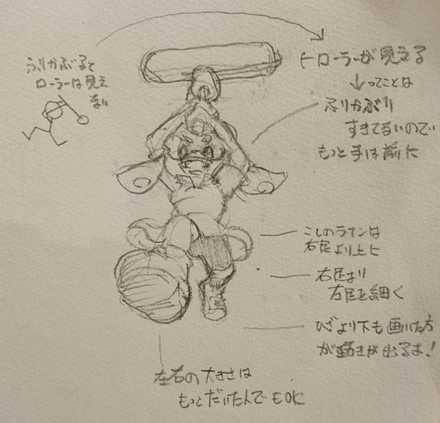 ふりかぶると
ローラーは見え
ない
ローラーが見える
↓ってことは
ふりかぶり
すぎてるいので
もっと手は前に
こしのラインは
右足より上に
右足より
左足を細く
ひざより下も画いた方
が動きが出るよ!
左右の大きさは
もっとだいたんでもOK